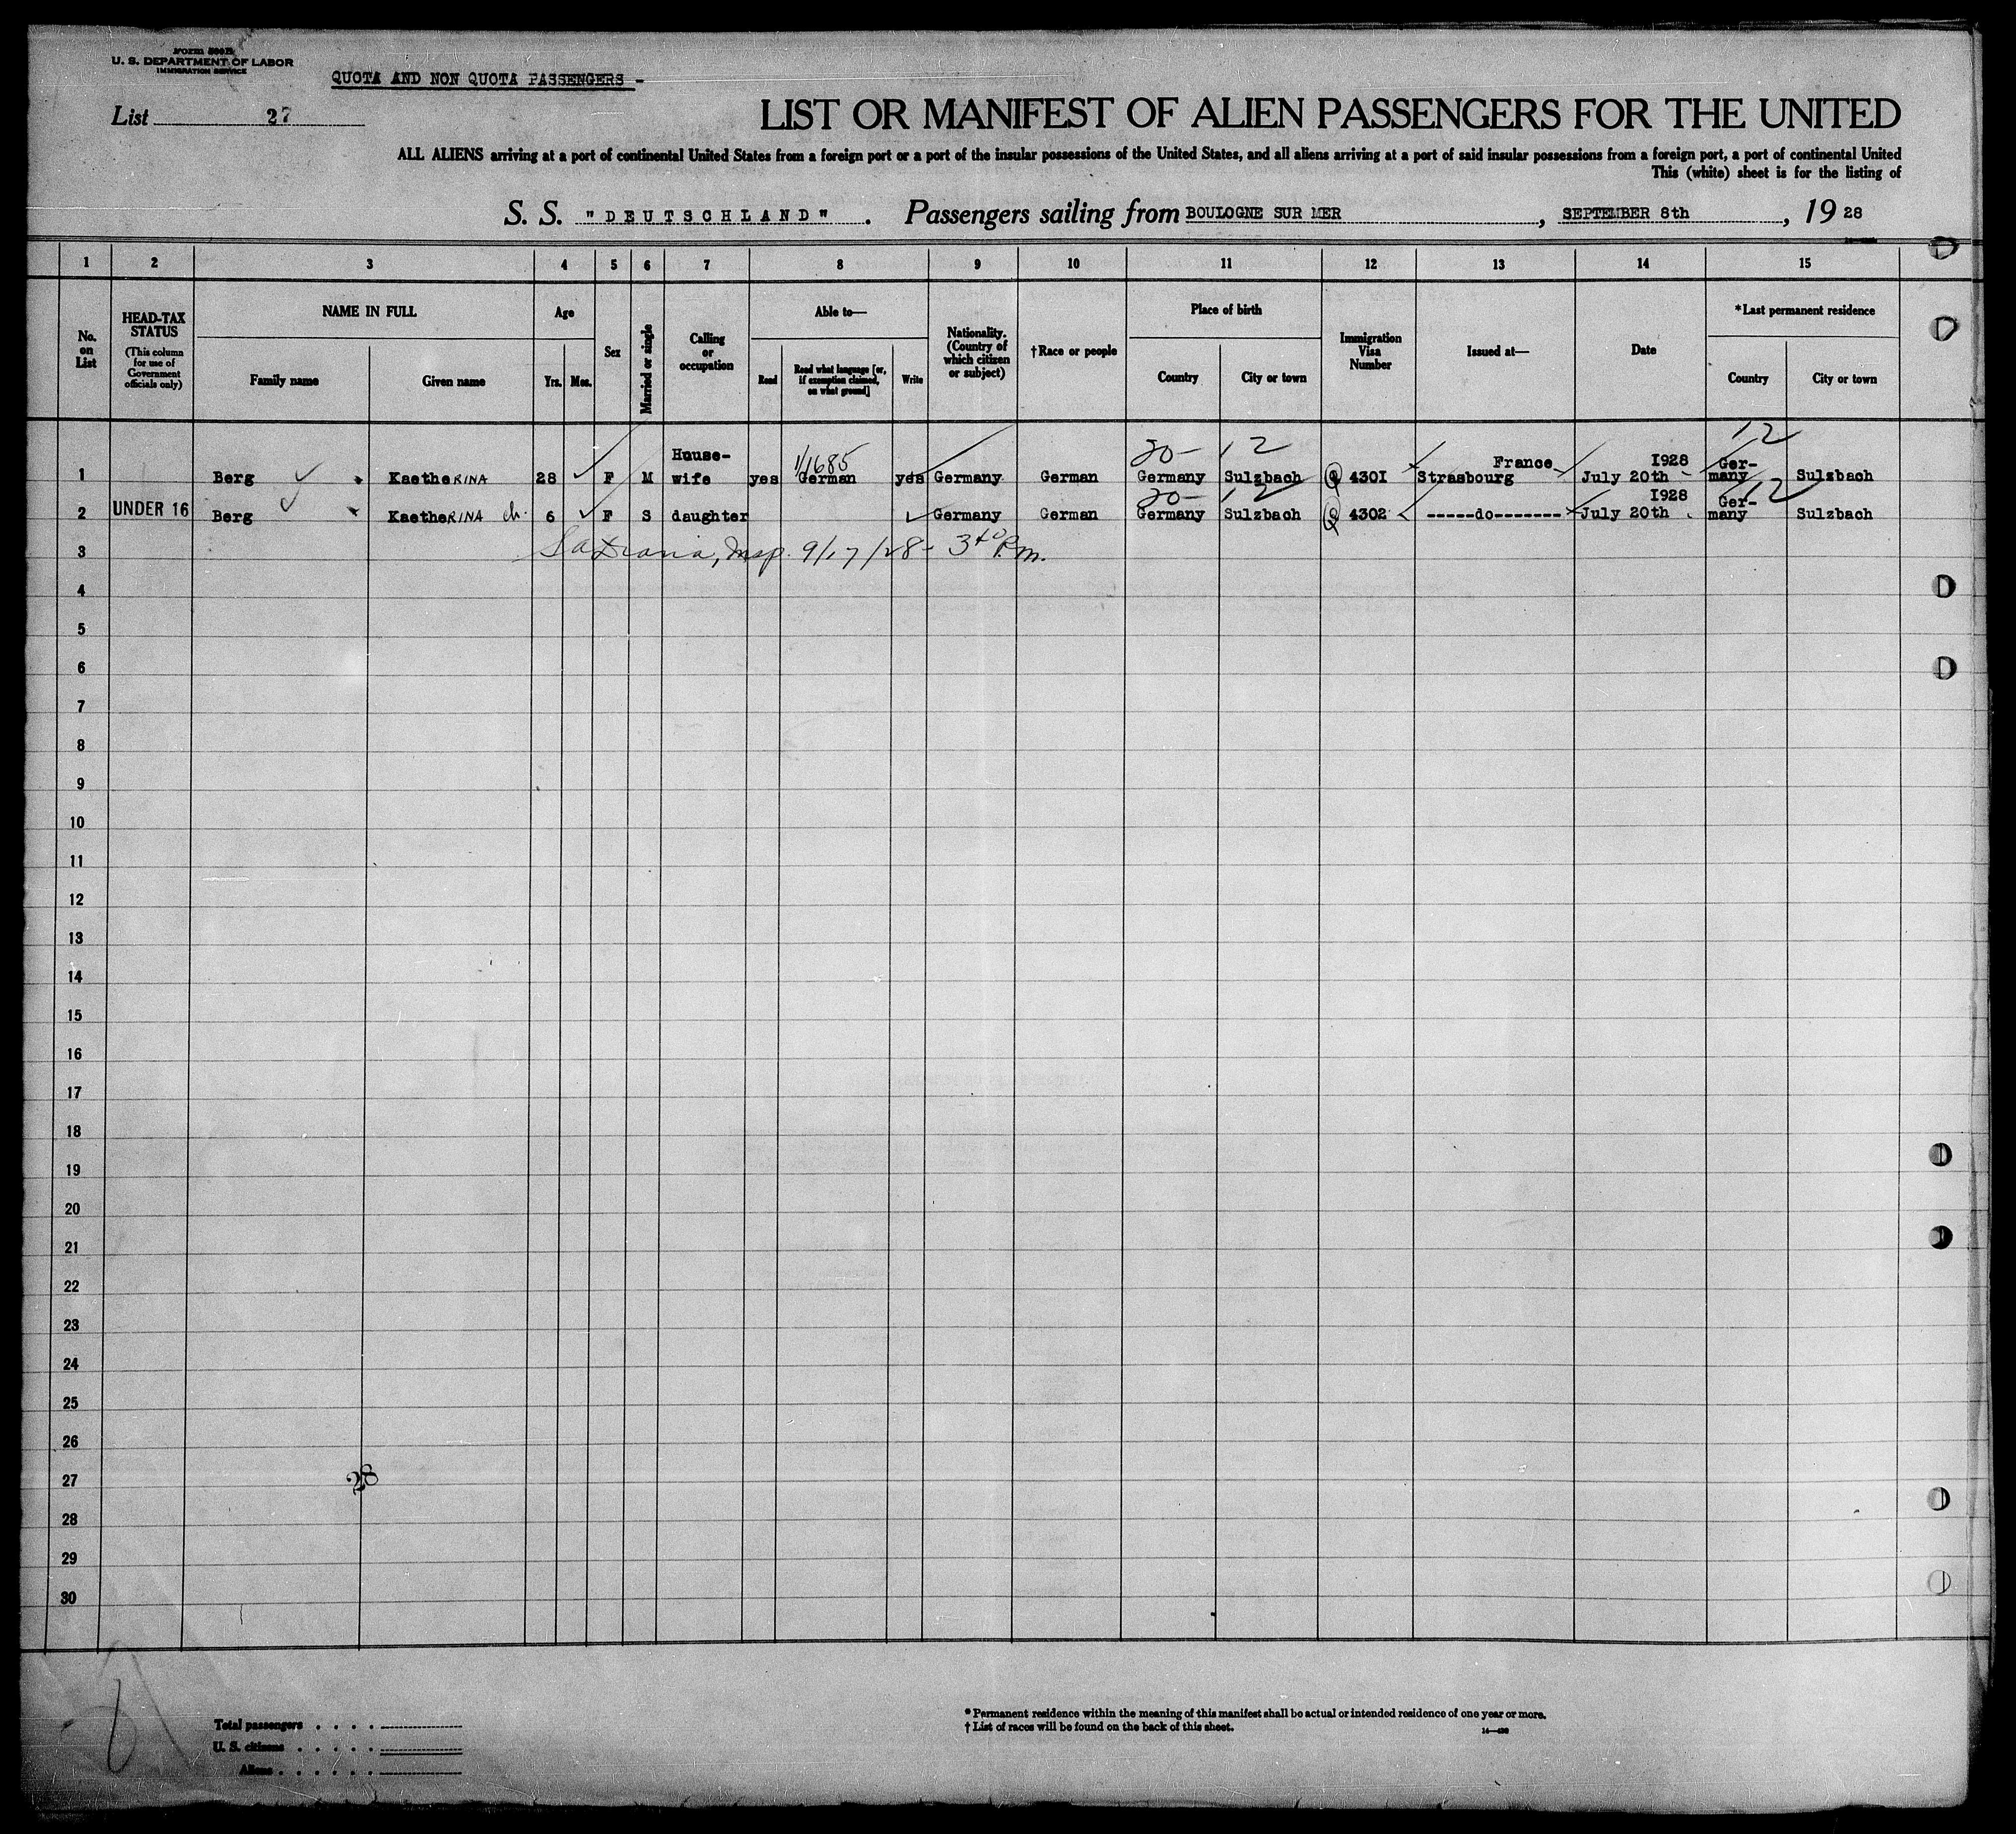 Form 500B
U. S. DEPARTMENT OF LABOR
IMMIGRATION SERVICE
QUOTA AND NON QUOTA PASSENGERS -
List 27
LIST OR MANIFEST OF ALIEN PASSENGERS FOR THE UNITED
ALL ALIENS arriving at a port of continental United States from a foreign port or a port of the insular possessions of the United States, and all aliens arriving at a port of said insular possessions from a foreign port, a port of continental United
This (white) sheet is for the listing of
S. S. "DEUTSCHLAND". Passengers sailing from BOULOGNE SUR MER, SEPTEMBER 8th, 19 28
1 2 3 4 5 6 7 8 9 10 11 12 13 14 15
No. on List
HEAD-TAX STATUS
(This column for use of Government officials only)
NAME IN FULL
Family name Given name
Age
Yrs. Mos.
Sex
Married or single
Calling or occupation
Able to—
Read
Read what language [or, if exemption claimed, on what ground]
Write
Nationality. (Country of which citizen or subject)
†Race or people
Place of birth
Country City or town
Immigration Visa Number
Issued at—
Date
*Last permanent residence
Country City or town
20- 12 12
1 Berg KaetheRINA 28 F M House-wife yes 1/1685 German yes Germany German Germany Sulzbach Q 4301 France Strasbourg 1928 July 20th - Ger-many Sulzbach
20- 12 12
2 UNDER 16 Berg KaetheRINA ch. 6 F S daughter Germany German Germany Sulzbach Q 4302 -----do------- 1928 July 20th Ger-many Sulzbach
3 Insp. 9/17/28 - 3 40 P.m.
4
5
6
7
8
9
10
11
12
13
14
15
16
17
18
19
20
21
22
23
24
25
26
27
28
28
29
30
Total passengers . . . .
U. S. citizens . . . . .
Aliens . . . . . .
* Permanent residence within the meaning of this manifest shall be actual or intended residence of one year or more.
† List of races will be found on the back of this sheet.